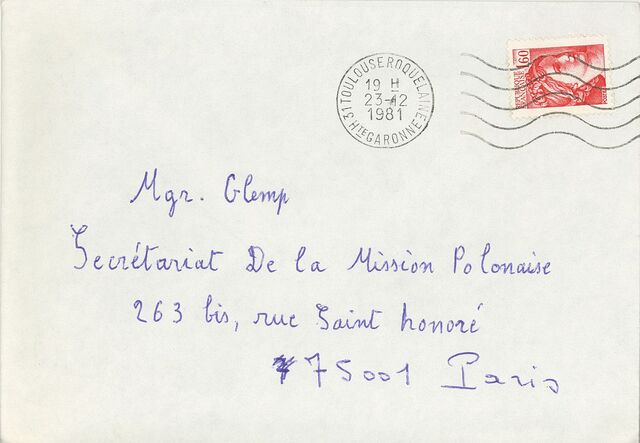 31 TOULOUSE ROQUELAINE
19 H
23-12
1981
Hte GARONNE
1,60
Mgr. Glemp
Secrétariat De la Mission Polonaise
263 bis, rue Saint honoré
75001 Paris